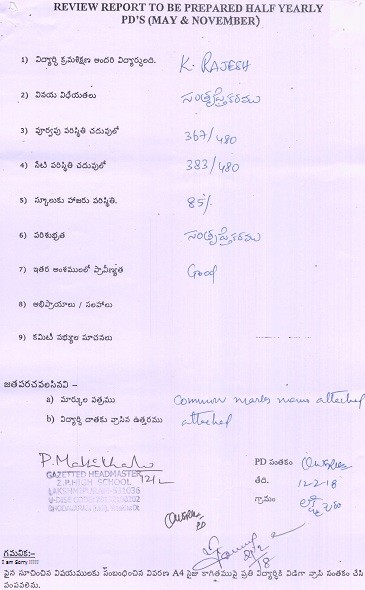 REVIEW REPORT TO BE PREPARED HALF YEARLY
PD'S (MAY & NOVEMBER)
1) విద్యార్థి క్రమశిక్షణ అందరి విద్యార్థులది. K. RAJESH
2) వినయ విధేయతలు సంతృప్తికరము
3) పూర్వపు పరిస్థితి చదువులో 367/480
4) నేటి పరిస్థితి చదువులో 383/480
5) స్కూలుకు హాజరు పరిస్థితి. 85%
6) పరిశుభ్రత సంతృప్తికరము
7) ఇతర అంశములలో ప్రావీణ్యత Good
8) అభిప్రాయాలు / సలహాలు
9) కమిటీ సభ్యుల సూచనలు
జతపరచవలసినవి -
a) మార్కుల పత్రము Common marks memo attached
b) విద్యార్థి దాతకు వ్రాసిన ఉత్తరము attached
PD సంతకం
GAZETTED HEADMASTER 12/2
తేది. 12-2-18
Z.P.HIGH SCHOOL
గ్రామం
గమనిక:-
I am Sorry !!!!!
పైన సూచించిన విషయములకు సంబంధించిన వివరణ A4 సైజు కాగితముపై ప్రతి విద్యార్థికి విడిగా వ్రాసి సంతకం చేసి
పంపవలెను.